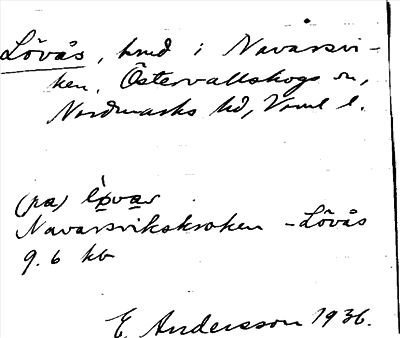 Lövås, hmd i Navarsvi-
ken, Östervallskogs sn,
Nordmarks hd, Vrml l.
(pa) lø̀vas
Navarsvikskroken - Lövås
9. 6 kb
E. Andersson 1936.